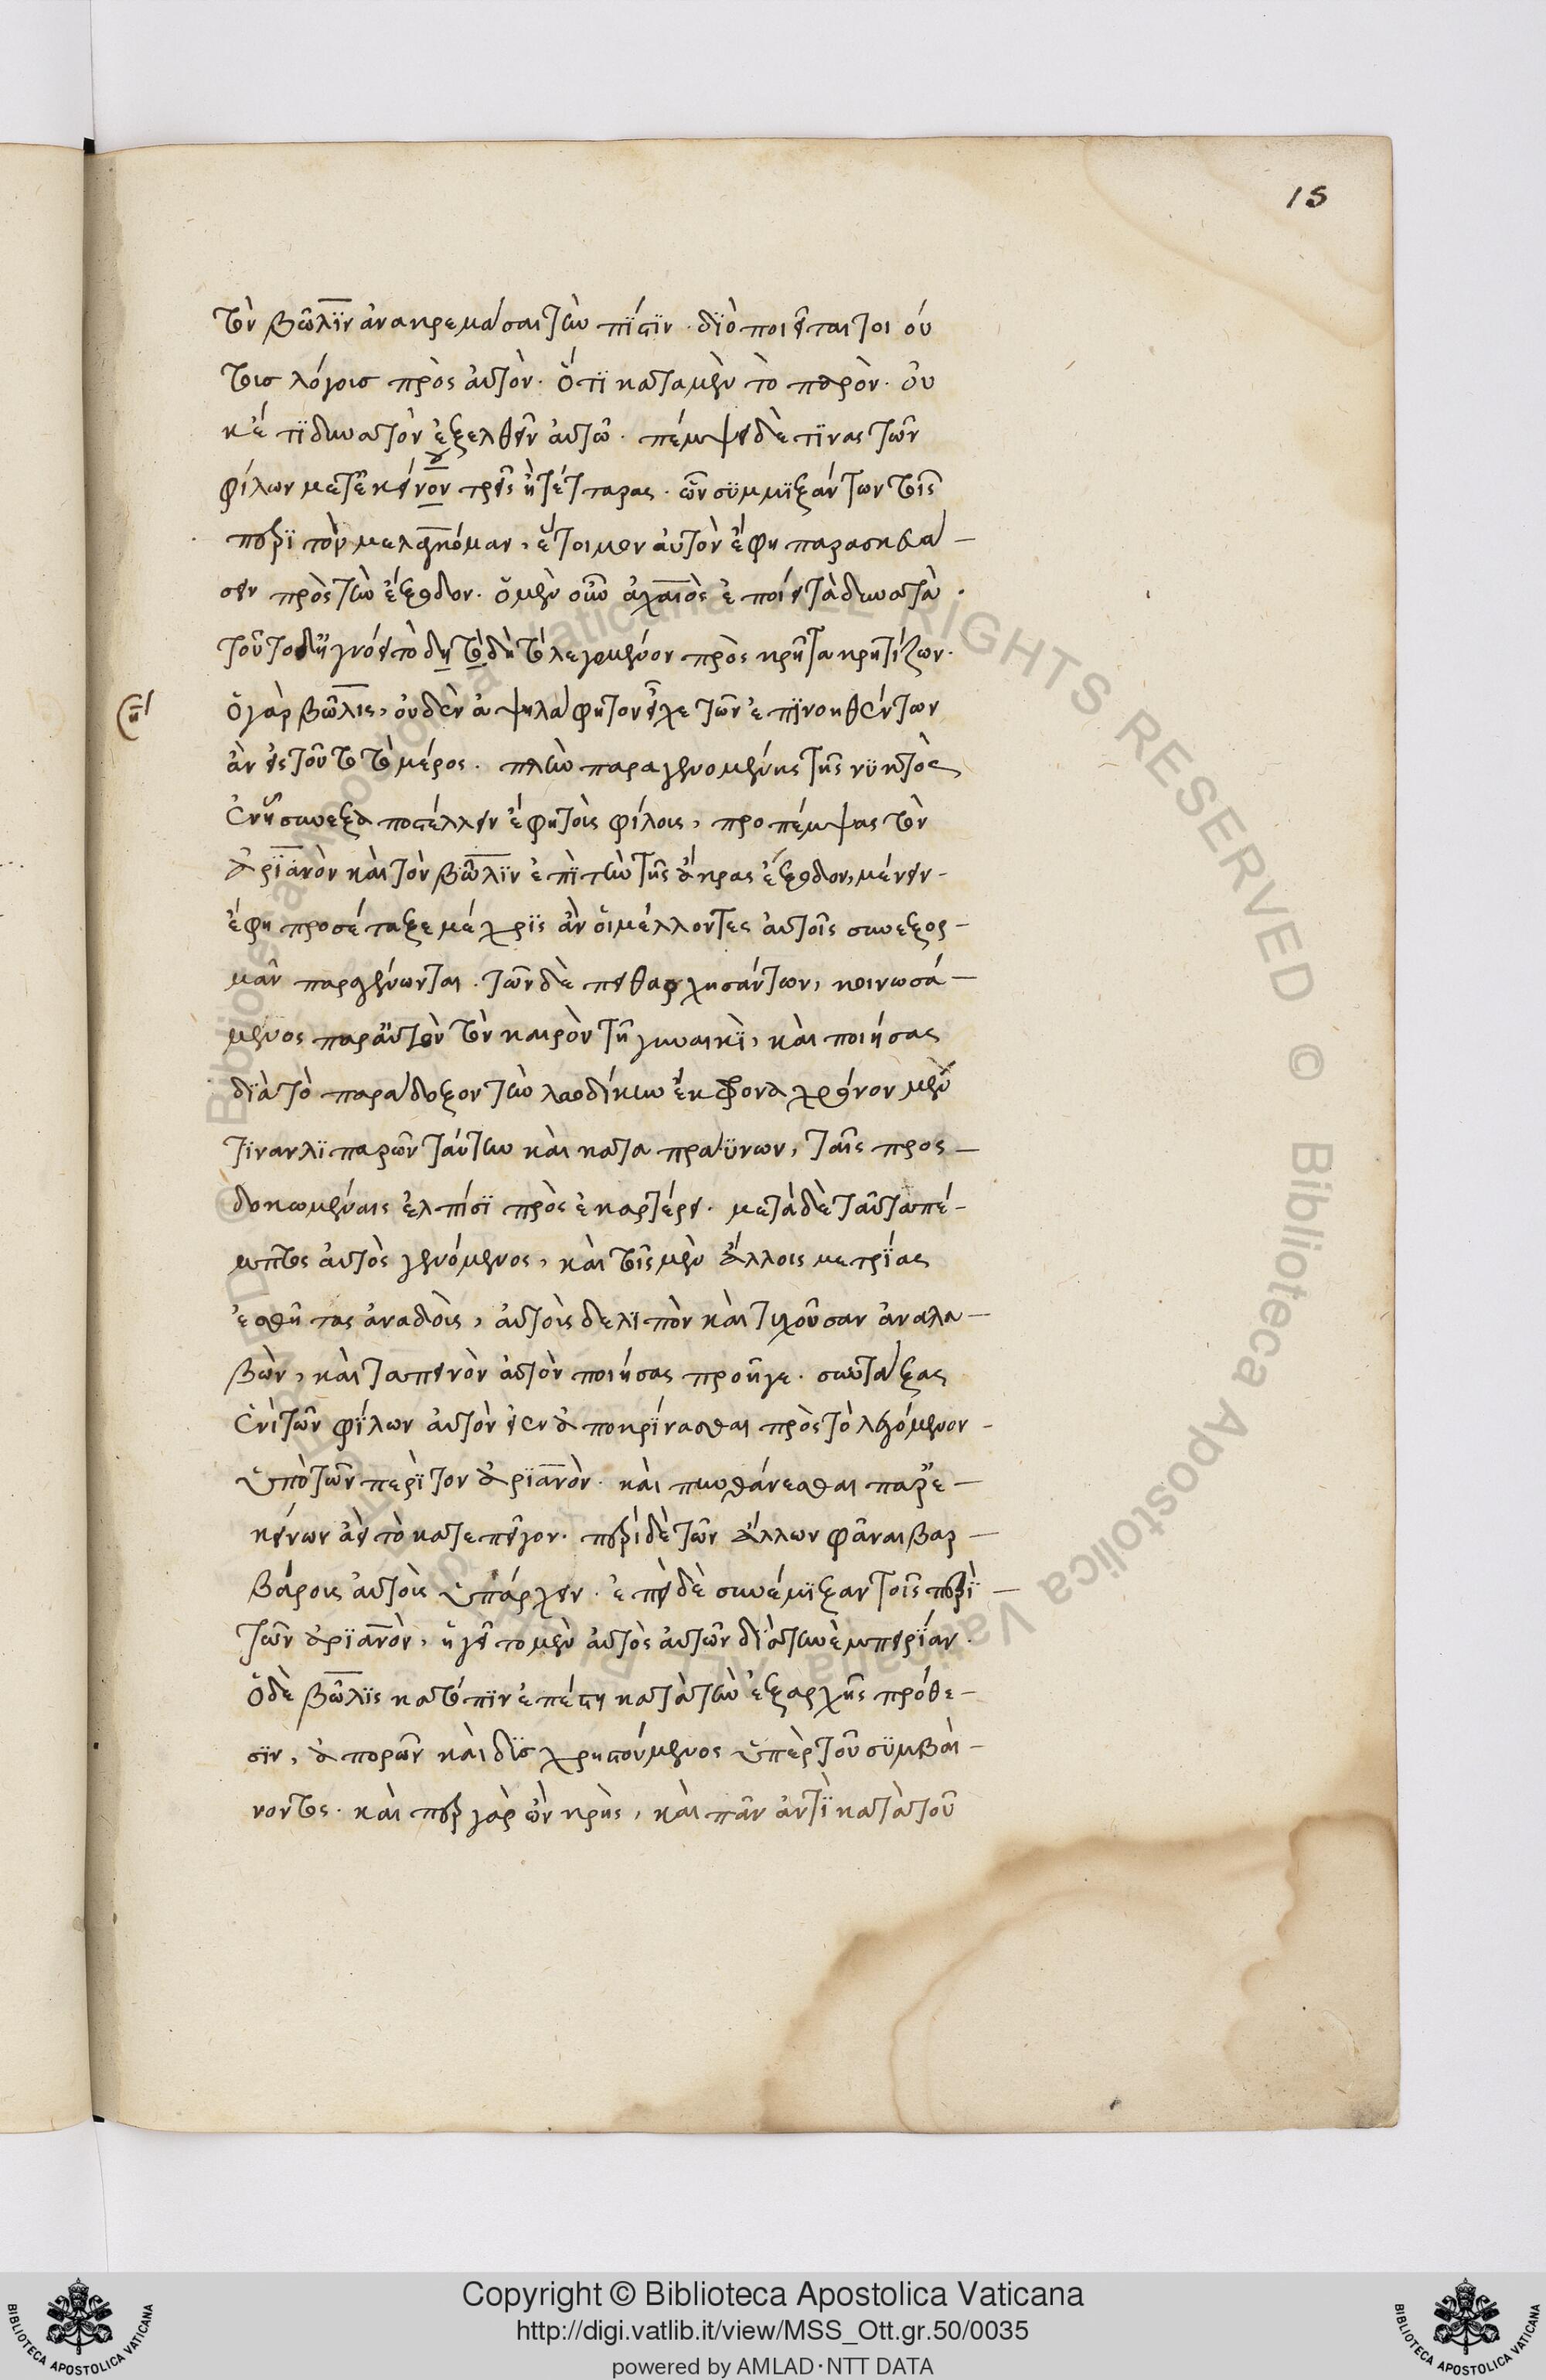 15
τὸν βῶλϊν ἀνακρεμάσαι τὴν πΐστϊν. δϊὸ ποιεῖται τοιού
τοισ λόγοισ πρὸς ἀυτὸν. ὅτϊ κατα μὲν τὸ παρὸν. ὀυ
κέ τϊ δυνατὸν ἐξελθεῖν ἀυτῶ. πέμψει δὲ τϊνας τῶν
φίλων μετ' ἐκείνον τρεῖς ἢ τέτταρας. ὧν συμμϊξάντων τοῖς
περϊ τὸν μελαγκόμαν, ἕτοιμον ἀυτὸν ἔφη παρασκευά
σειν πρὸς τὴν ἔξοδον. ὁ μὲν οὖν ἀχαιὸς ἐποίει τὰ δυνατὰ.
τοῦτο δ' ἠγνόει τὸ δὴ τὸ δὴ τὸ λεγομένον πρὸς κρῆτα κρητίζων.
ὁ γὰρ βῶλις, ὀυδὲν ἀψηλάφητον εἶχε τῶν ἐπϊνοηθέντων
ἀν εἰς τοῦτο τὸ μέρος. πλὴν παραγενομένης τῆς νϋκτὸς
ἐν ἧ συνεξαποστέλλειν ἔφη τοὶς φίλοις, προπέμψας τὸν
ἀρϊανὸν καὶ τὸν βῶλϊν ἐπϊ τὴν τῆς ἄκρας ἔξοδον, μένειν
ἔφη προσέταξε μέχρϊς ἀν ὁι μέλλοντες ἀυτοῖς συνεξορ
μᾶν παραγένωνται. τῶν δὲ πειθαρχησάντων, κοινωσά
μενος παρ' ἀυτὸν τὸν καιρὸν τῆ γυναικϊ, καὶ ποιήσας
δϊὰ τὸ παράδοξον τὴν λαοδίκην ἔκφρονα χρόνον μέν
τϊνα λϊπαρῶν ταύτην καὶ καταπραΰνων, ταῖς προς
δοκωμέναις ἐλπίσϊ πρὸς ἐκαρτέρει. μετὰ δὲ ταῦτα πέ
μπτος ἀυτὸς γενόμενος, καὶ τοῖς μὲν ἄλλοις μετρΐας
ἐσθῆτας ἀναδοὶς, ἀυτοὶς δε λϊτὸν καὶ τυχοῦσαν ἀναλα
βὼν, καὶ ταπεινὸν ἀυτὸν ποιήσας προῆγε. συντάξας
ἑνὶ τῶν φϊλων ἀυτὸν εἰεν ἀποκρΐνασθαι πρὸς τὸ λεγόμενον
ὑπὸ τῶν περϊ τον ἀρϊανὸν. καὶ πυνθάνεσθαι παρ' ἐ
κείνων ἀεὶ τὸ κατεπεῖγον. περὶ δὲ τῶν ἄλλων φᾶναι βαρ
βάροις ἀυτοὶς ὑπάρχειν. ἐπεὶ δὲ συνέμϊξαν τοῖς περϊ
τῶν ἀρϊανὸν, ἡγεῖτο μὲν ἀυτὸς ἀυτῶν δϊὰ τὴν ἐμπειρΐαν.
ὁ δὲ βῶλϊς κατόπϊν ἐπέστη κατὰ τὴν ἐξαρχῆς πρόθε
σϊν, ἀπορῶν καὶ δϊσχρηστούμενος ὑπὲρ τοῦ συμβαὶ
νοντος. καὶ περ γὰρ ὢν κρὴς, καὶ πᾶν ἀντϊ κατὰ τοῦ
Copyright © Biblioteca Apostolica Vaticana
http://digi.vatlib.it/view/MSS_Ott.gr.50/0035
powered by AMLAD·NTT DATA